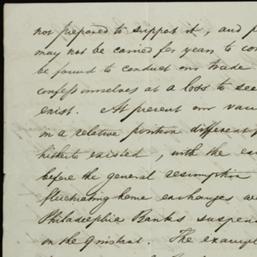 not prepared to support it, and
may not be carried for years to
be found to conduct our trade
confess ourselves at a loss to see
exist. At present our
in a relative position different
hitherto existed, with the
before the general resumption
fluctuating home exchanges
Philadelphia Banks
on the 9 instant. The